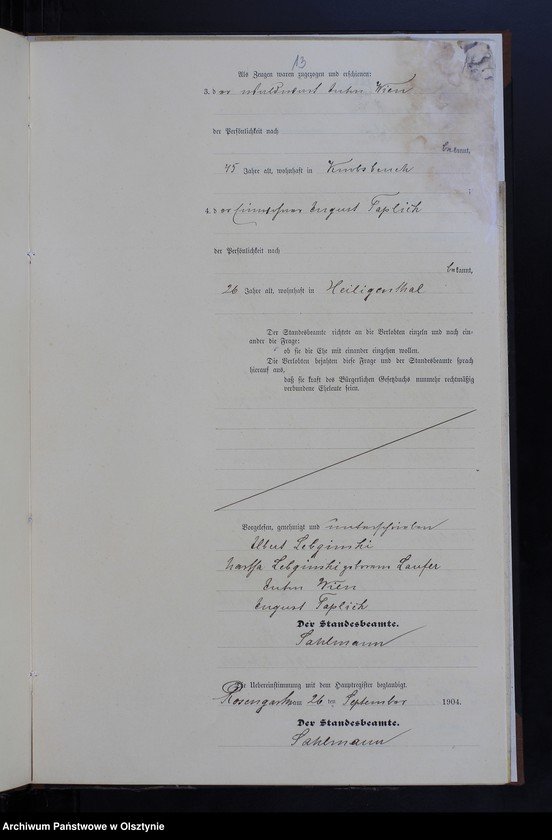 13
Als Zeugen waren zugezogen und erschienen:
3. der Anton Wien
der Persönlichkeit nach
bekannt,
45 Jahre alt, wohnhaft in
4. der Einwohner August Taplick
der Persönlichkeit nach
bekannt,
26 Jahre alt, wohnhaft in Heiligenthal
Der Standesbeamte richtete an die Verlobten einzeln und nach ein-
ander die Frage:
ob sie die Ehe mit einander eingehen wollen.
Die Verlobten bejahten diese Frage und der Standesbeamte sprach
hierauf aus,
daß sie kraft des Bürgerlichen Gesetzbuchs nunmehr rechtmäßig
verbundene Eheleute seien.
Vorgelesen, genehmigt und unterschrieben
Albert Lebginski
Martha Lebginski geborene Laufer
Anton Wien
August Taplick
Der Standesbeamte.
Sahlmann
Die Uebereinstimmung mit dem Hauptregister beglaubigt.
Rosengarth am 26 ten September 1904.
Der Standesbeamte.
Sahlmann
Archiwum Państwowe w Olsztynie